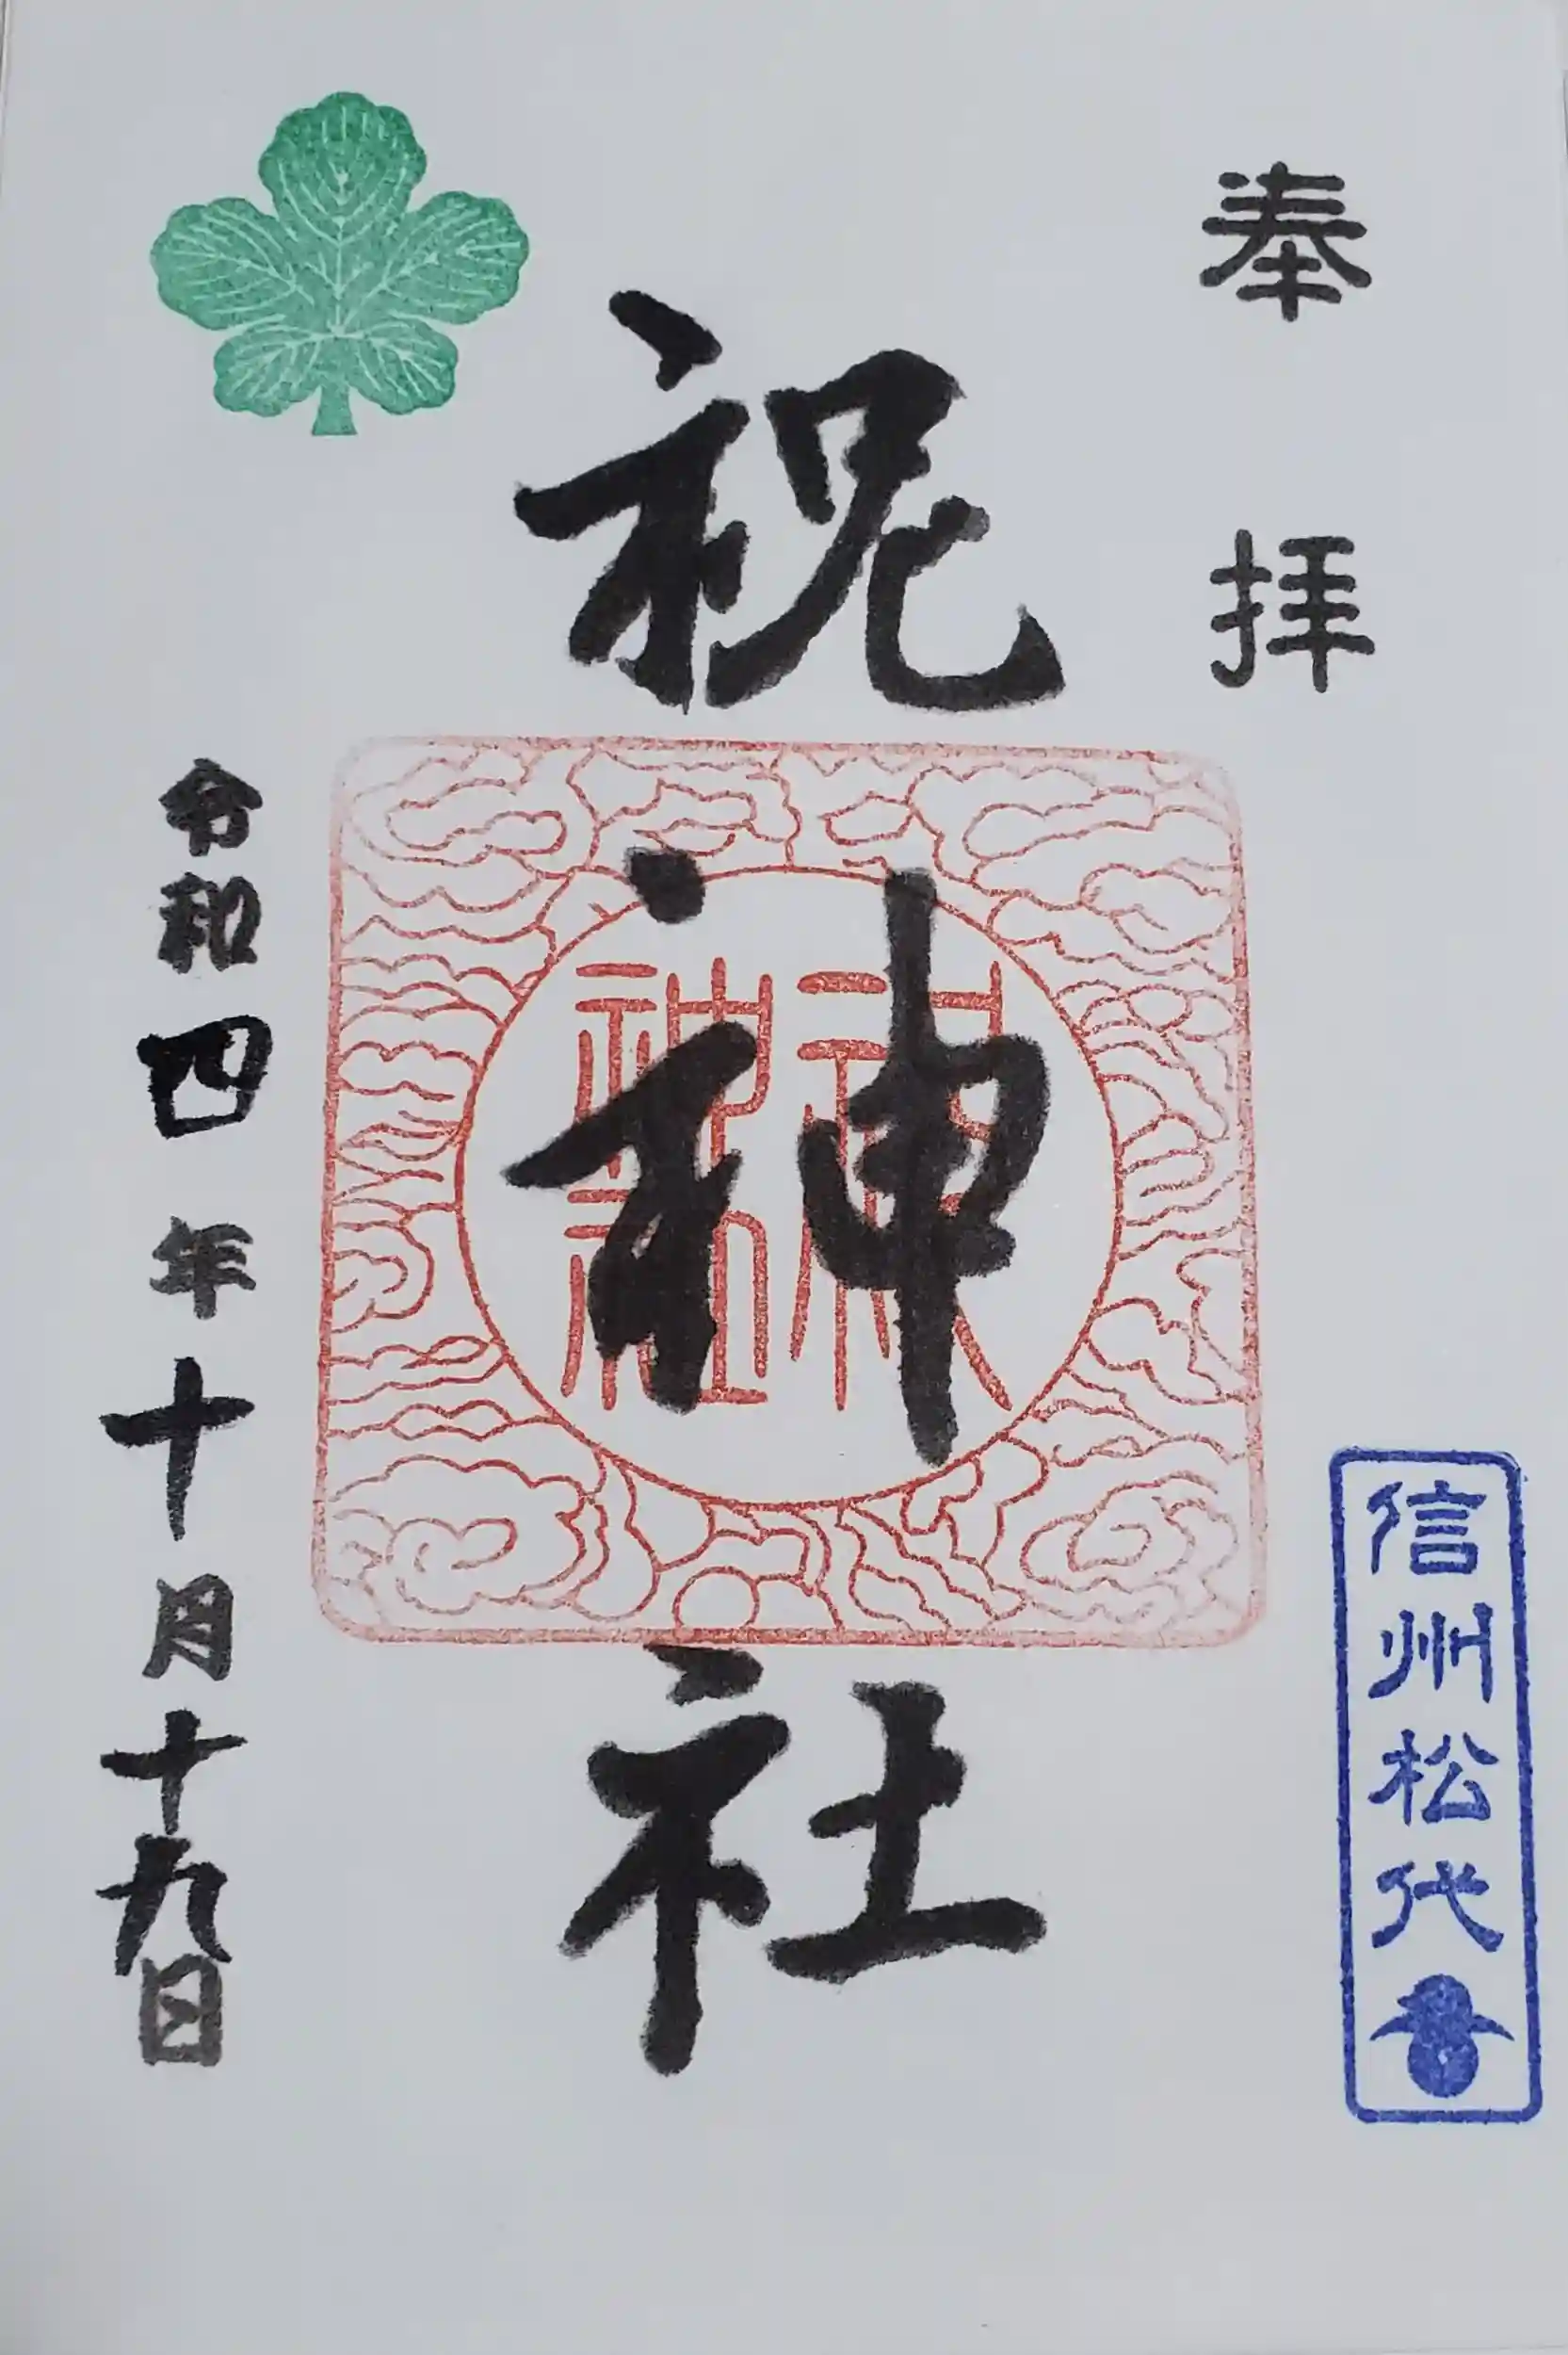 奉拝
祝神社
信州松代
令和四年十月十九日